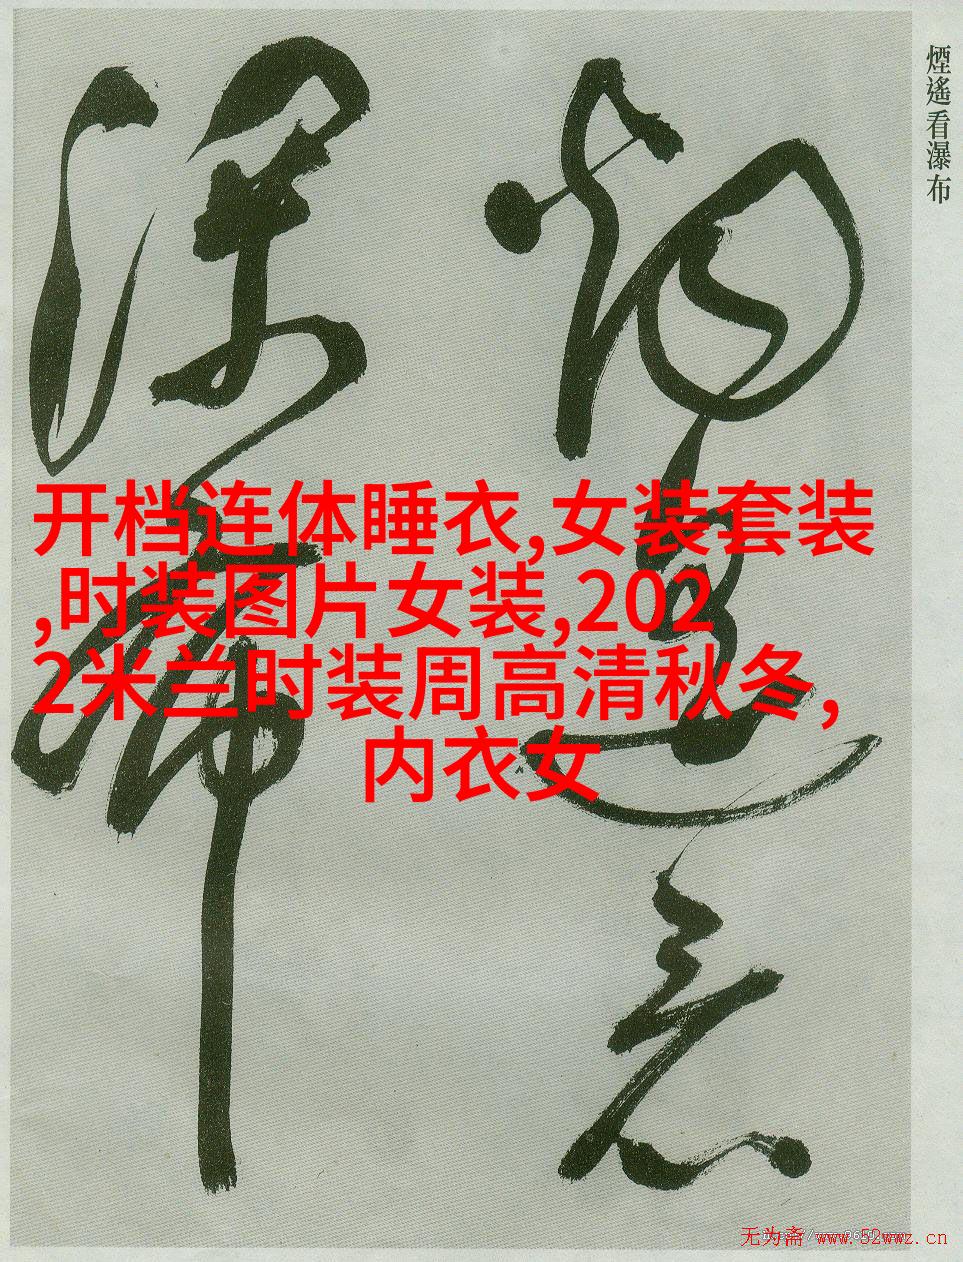 煙遙看瀑布
煙遙看
瀑布
开档连体睡衣,女装套装
,时装图片女装,202
2米兰时装周高清秋冬,
内衣女
无为斋 www.52wwz.cn